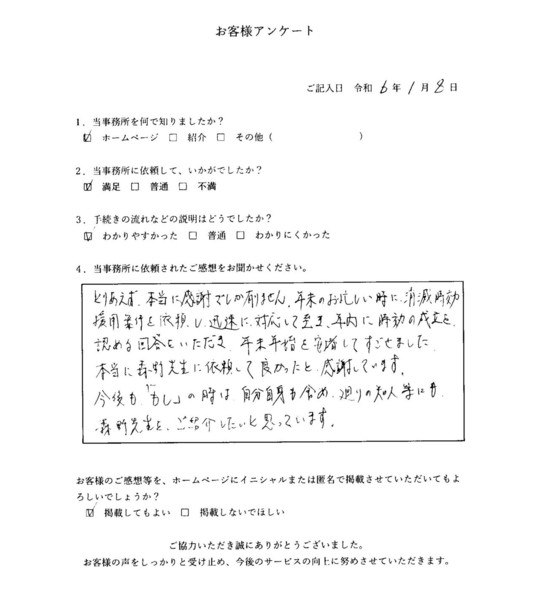 お客様アンケート
ご記入日 令和 6 年 1 月 8 日
1．当事務所を何で知りましたか？
☑ ホームページ ☐ 紹介 ☐ その他（ ）
2．当事務所に依頼して、いかがでしたか？
☑ 満足 ☐ 普通 ☐ 不満
3．手続きの流れなどの説明はどうでしたか？
☑ わかりやすかった ☐ 普通 ☐ わかりにくかった
4．当事務所に依頼されたご感想をお聞かせください。
とりあえず、本当に感謝でしか有りません。年末のお忙しい時に、消滅時効
援用案件を依頼し、迅速に対応して、年内に時効の成立を、
認める回答をいただき、年末年始を安堵してすごせました。
本当に森野先生に依頼して良かったと、感謝しています。
今後も「もし」の時は自分自身も含め、廻りの知人等にも、
森野先生を、ご紹介したいと思っています。
お客様のご感想等を、ホームページにイニシャルまたは匿名で掲載させていただいてもよ
ろしいでしょうか？
☑ 掲載してもよい ☐ 掲載しないでほしい
ご協力いただき誠にありがとうございました。
お客様の声をしっかりと受け止め、今後のサービスの向上に努めさせていただきます。